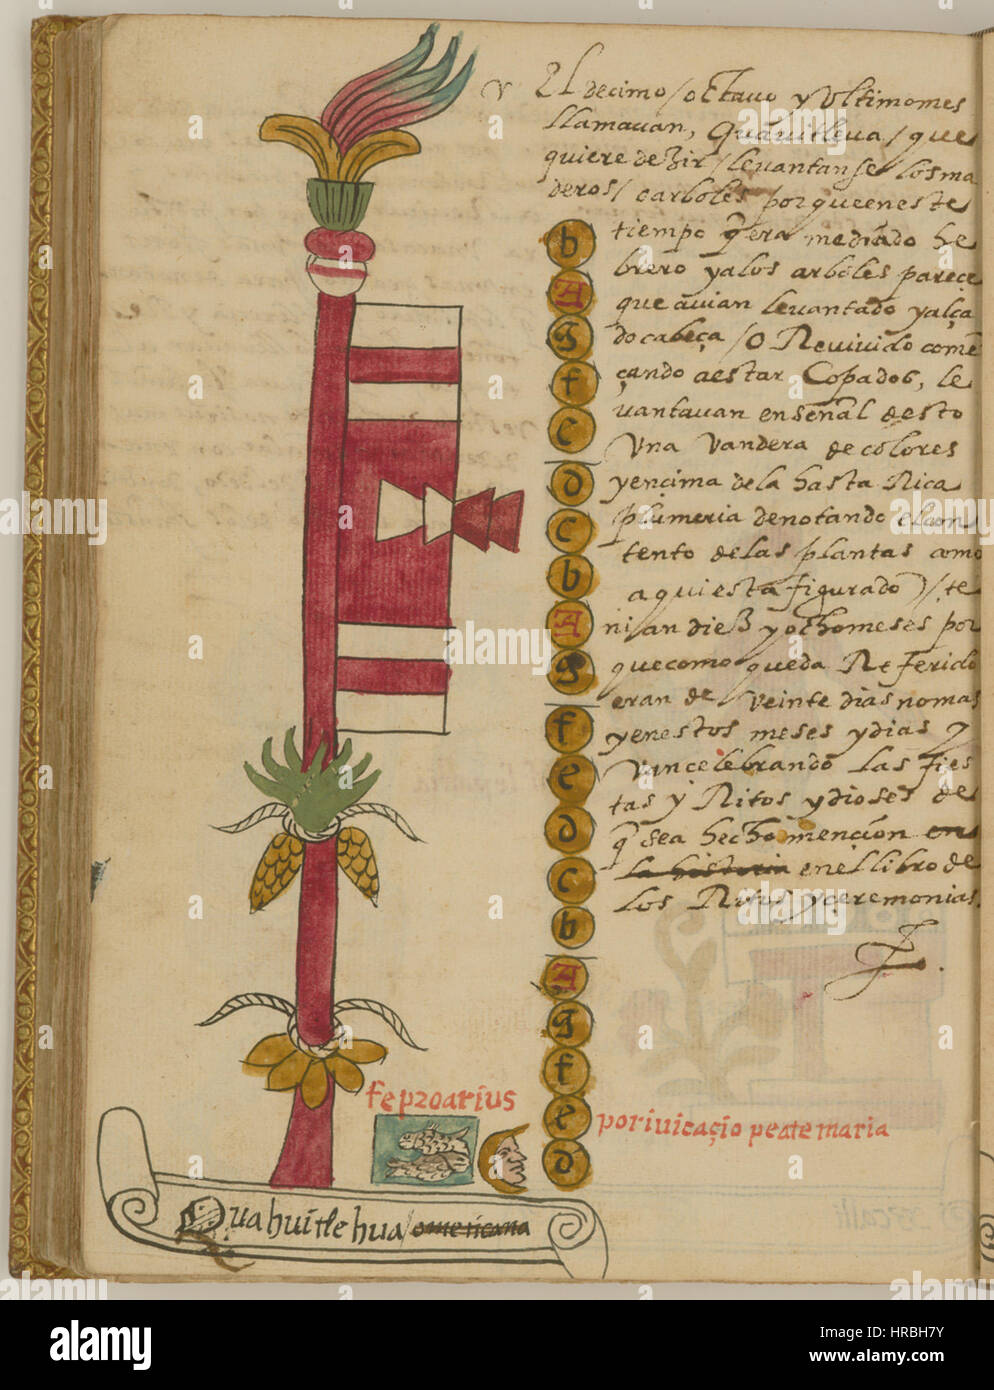 El decimo/octavo y Vltimo mes
llamavan, Quavitleva/que
quiere dezir/levantanse los ma
deros/oarboles porque en este
tiempo q̃ era mediado he
brero yalos arboles pareçe
que avian levantado yalça
do cabeça/o Revivido comẽ
çando aestar Copados, le
vantavan en señal desto
Vna Vandera de colores
yencima dela hasta Rica
plumeria denotando el con
tento delas plantas como
aqui esta figurado)/te
nian diez yocho meses por
que como queda Referido
eran de veinte dias no mas
yenestos meses ydias y
van celebrando las fies
tas y Ritos ydioses de
q̃ sea hecho mençion en
la historia en el libro de
los Ritos yçeremonias.
b
A
g
f
e
d
c
b
A
g
f
e
d
c
b
A
g
f
e
d
feproarius
porivicaçio peatemaria
Quahuitlehua/omericana
alamy
Image ID: HRBH7Y
www.alamy.com